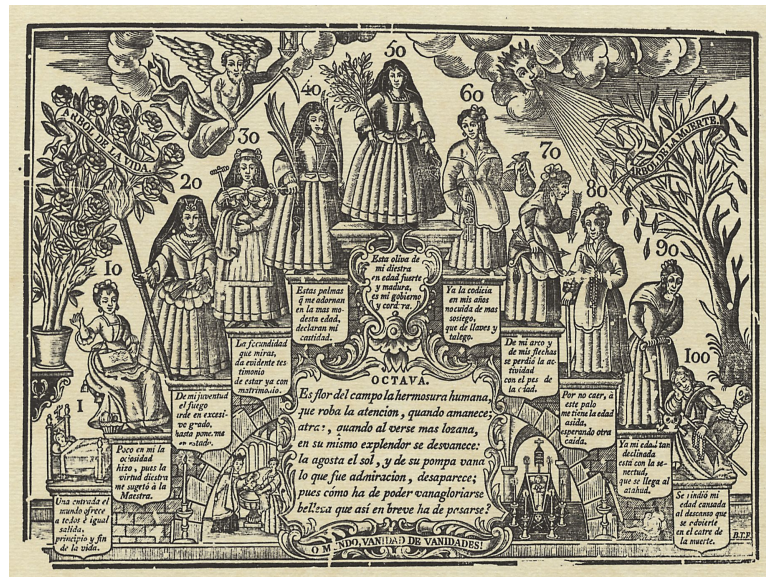 ARBOL DE LA VIDA.
ARBOL DE LA MUERTE.
1
10
20
30
40
50
60
70
80
90
100
Una entrada el
mundo ofrece
a todos è igual
salida.
principio y fin
de la vida.
Poco en mi la
ociosidad
hizo, pues la
virtud diestra
me sugetó à la
Maestra.
De mi juventud
el fuego
arde en excesi-
vo grado,
hasta ponerme
en estado.
La fecundidad
que miras,
da evidente tes
timonio
de estar ya con
matrimonio.
Estas palmas
q̃ me adornan
en la mas mo-
desta edad,
declaran mi
castidad.
Esta oliva de
mi diestra
en edad fuerte
y madura,
es mi gobierno
y cordura.
Ya la codicia
en mis años
no cuida de mas
sosiego,
que de llaves y
talego.
De mi arco y
de mis flechas
se perdió la ac-
tividad
con el pes de
la edad.
Por no caer, à
este palo
me tiene la edad
asida,
esperando otra
caida.
Ya mi edad tan
declinada
está con la se-
nectud,
que se llega al
atahud.
Se rindió mi
edad cansada
al descanso que
se advierte
en el catre de
la muerte.
OCTAVA.
Es flor del campo la hermosura humana,
que roba la atencion, quando amanece;
atrae, quando al verse mas lozana,
en su mismo explendor se desvanece:
la agosta el sol, y de su pompa vana
lo que fue admiracion, desaparece;
pues cómo ha de poder vanagloriarse
belleza que asi en breve ha de pasarse?
O MUNDO, VANIDAD DE VANIDADES!